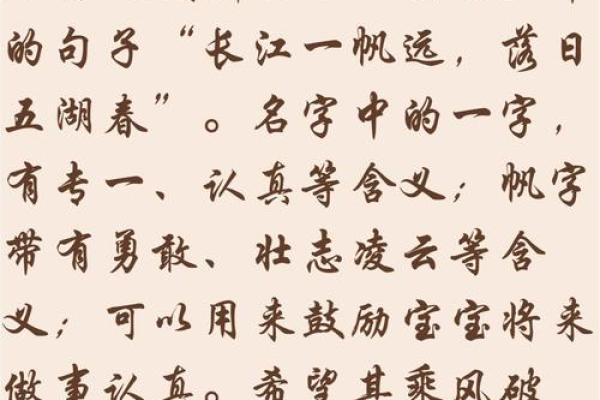 的句子“长江一帆远，落日
五湖春”。名字中的一字，
有专一、认真等含义；帆字
带有勇敢、壮志凌云等含
义；可以用来鼓励宝宝将来
做事认真。希望其乘风破